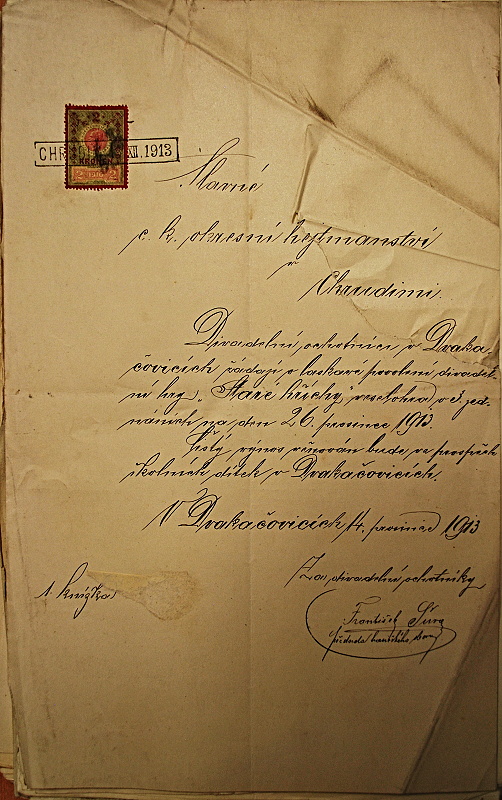 2
CHR XII. 1913
KRONEN
2 1910 2
Slavné
c. k. okresní hejtmanství
v
Chrudimi.
Divadelní ochotníci v Draka-
čovicích žádají o laskavé povolení divadel-
ní hry „Staré hříchy, veselohra o 3 jed-
náních na den 26. prosince 1913.
Čistý výnos věnován bude ve prospěch
školních dítek v Drakačovicích.
V Drakačovicích 14. prosince 1913
Za divadelní ochotníky
1. knížka
František
předseda